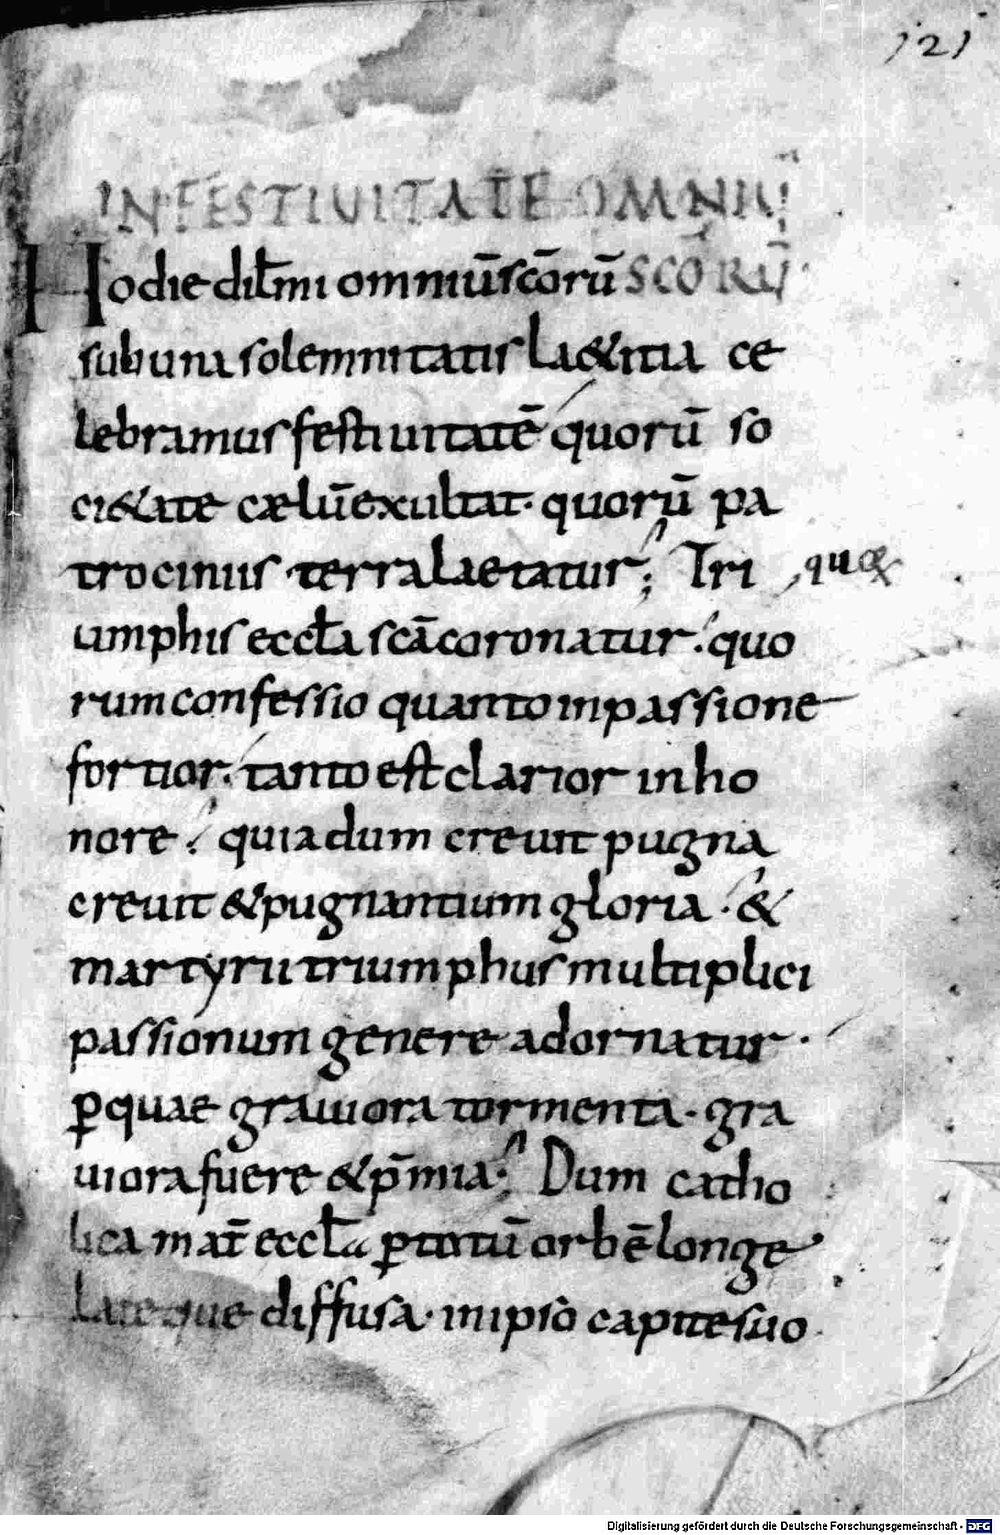 121
IN FESTIUITATE OMNIŪ
Hodie dił̄mi omniūscōrū SCŌRŪ
sub una solemnitatis la&itia ce
lebramus festiuitatē quorū so
ci&ate cælūexultat· quorū pa
trociniis terra laetatur; Tri ,quæ
umphis eccl̄a scācoronatur·quo
rum confessio quanto inpassione
fortior· tanto est clarior inho
nore· quia dum creuit pugna
creuit &pugnantium gloria· &
martyrii triumphus multiplici
passionum genere adornatur·
ꝑquae grauiora tormenta· gra
uiora fuere &p̄mia; Dum catho
lica mat̄ eccl̄a ꝑtotū orbē longe
late que diffusa· inipso capite suo
Digitalisierung gefördert durch die Deutsche Forschungsgemeinschaft - DFG